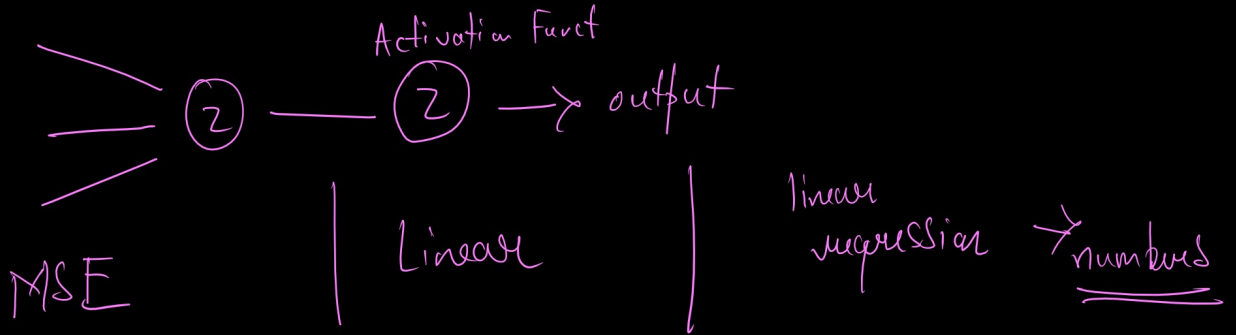 Activation Funct
2 2 → output
MSE | Linear | linear
regression → numbers